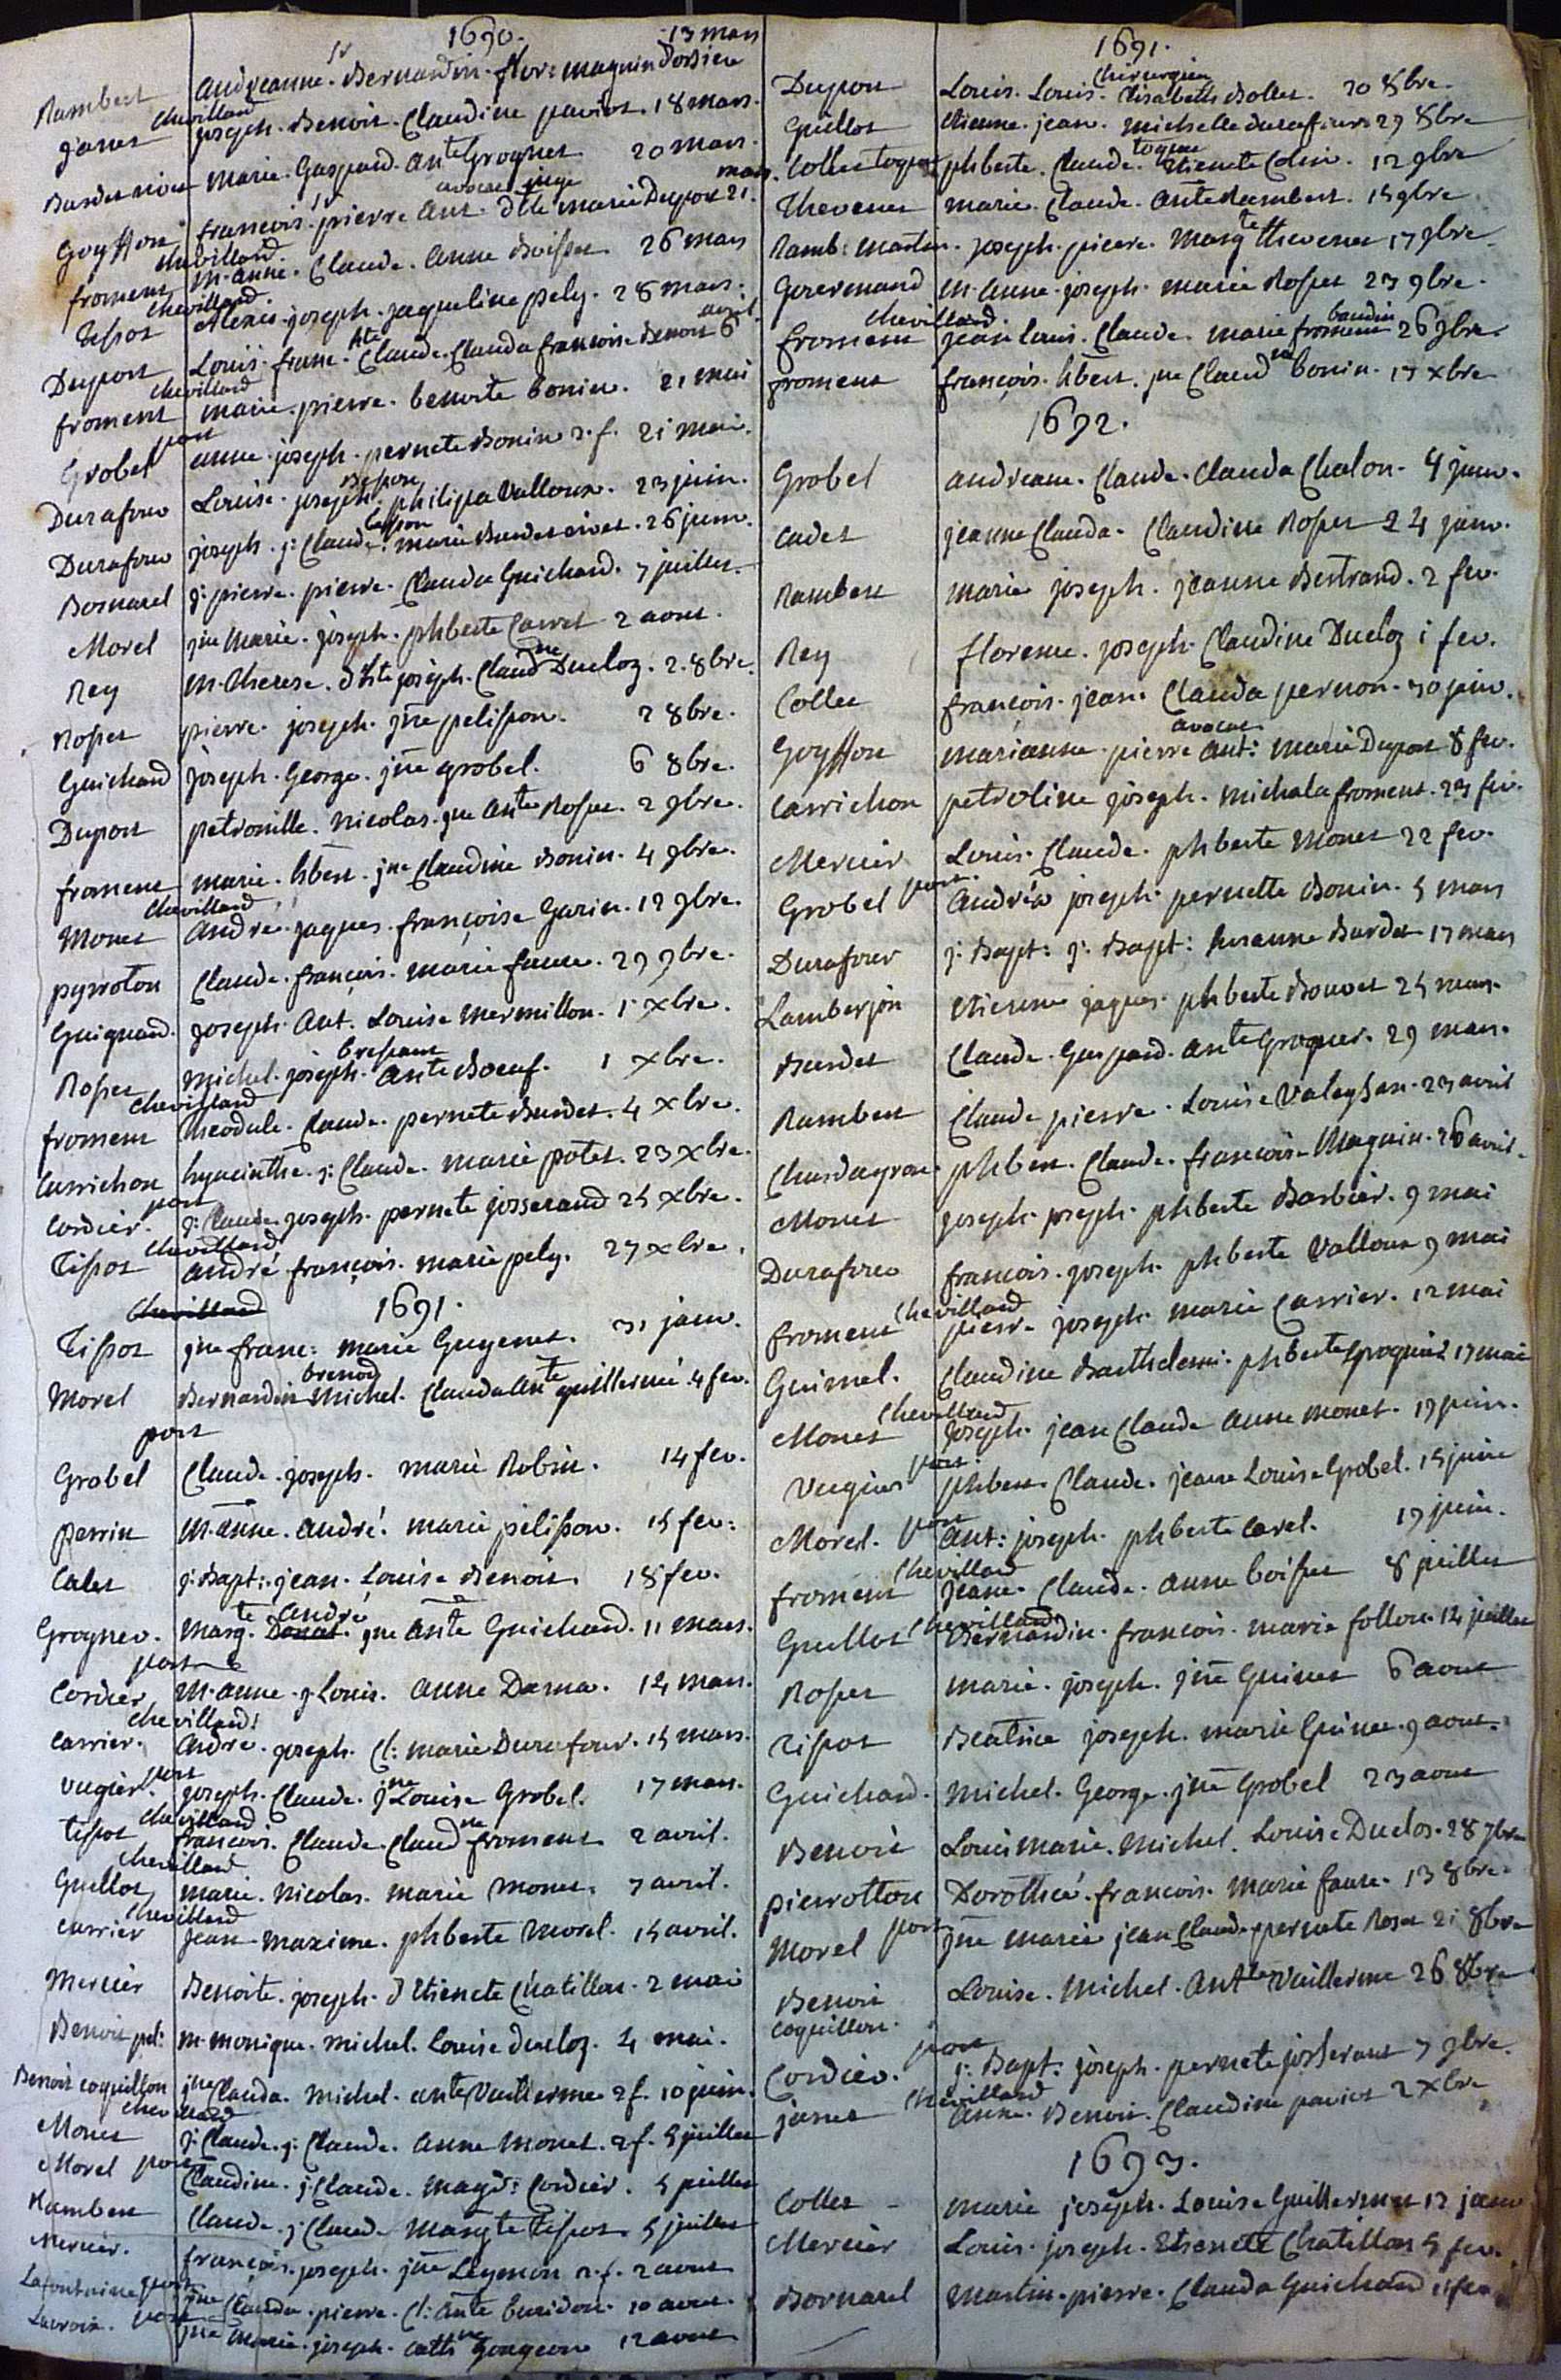 1690.
Rambert andréanne. Bernardin. flor: maguin Dorsiere 13 mars
janet chevillard joseph. Benoit. Claudine paviot. 18 mars.
Burdet marie. Gaspard. Ante Grognet 20 mars.
Goyffon francois. pierre ant. avocat juge dlle marie Dupont 21. mars.
froment chevillard. m. anne. Claude. Anne Boisset 26 mars
Tissot chevillard. Alexis. joseph. jaqueline pely. 28 mars.
Dupont Louis. franc. Claude. Clauda francoise Benoit 6 avril.
froment chevillard marie. pierre. benoite bonin. 21 mai
Grobel port anne. joseph. pernete Bonin 2. f. 21 mai.
Durafour Louise. joseph. philipa Valloux. 23 juin.
Durafour joseph. j: Claude. marie Burdet. 26 juin.
Bornarel j: pierre. pierre. Clauda Guichard. 7 juillet.
Morel jne Marie. joseph. phberte Carret 2 aout.
Rey m. therese. joseph. Claudne Ducloz. 2. 8bre.
Rosset pierre. joseph. jne pelisson. 2 8bre.
Guichard joseph. George. jne grobel. 6 8bre.
Dupont petronille. Nicolas. jne Ante Rosset. 2 9bre.
froment marie. hbert. jne Claudine Bonin. 4 9bre.
Monet chevillard André. jaques. françoise Garin. 12 9bre.
pyrroton Claude. françois. marie faure. 29 9bre.
Guignard. joseph. Ant. Louise mermillon. 1 xbre.
Rosset michel. joseph. bressant Ante Boeuf. 1 xbre.
froment chevillard theodule. Claude. pernete Burdet. 4 xbre.
Carrichon hyacinthe. j: Claude. marie potet. 23 xbre.
Cordier. port j: Claude. joseph. pernete josserand 25 xbre.
Tissot chevillard andré françois. marie pely. 27 xbre.
chevillard 1691.
Tissot jne franc: marie Guyenet. 31 janv.
Morel Bernardin Michel. brenod Clauda Ante guillermé. 4 fev.
Grobel port Claude. joseph. marie Robin. 14 fev.
perrin m. anne. andré. marie pelisson. 15 fev:
Calet j: Bapt: jean. Louise Benoit. 18 fev.
Grognet. margte Donat. André jne ante Guichard. 11 mars.
Cordier port m. anne. j Louis. anne Dama. 14 mars.
Carrier. chevillard: andré. joseph. Cl: marie Durafour. 15 mars.
vugier. port joseph. Claude. jne Louise Grobel. 17 mars.
tissot chevillard francois. Claude. Claudne froment. 2 avril.
Guillot chevillard marie. Nicolas. marie Monet. 7 avril.
carrier chevillard jean. maxime. phberte Morel. 15 avril.
Mercier Benoite. joseph. Etienete Chatillon. 2 mai
Benoit pel: m. monique. michel. Louise ducloz. 4 mai.
Benoit coquillon jne Clauda. michel. ante Vuillerme 2 f. 10 juin.
Monet chevillard j: Claude. j: Claude. anne monet. 2 f. 5 juillet
Morel port Claudine. j: Claude. magd: Cordier. 5 juillet
Rambert Claude. j: Claude. Margte Tissot. 5 juillet
Mercier. françois. joseph. jne Leymon 2. f. 2 aout
Lafontaine port jne Clauda. pierre. Cl: ante buridon. 10 aout.
Lacroix. port jne marie. joseph. cathne Gougeon 12 aout
1691.
Dupont Louis. Louis. chirurgien Elisabeth Bollet. 20 8bre.
Guillot etienne. jean. michelle durafour 29 8bre
Collet toquat phberte. Claude. toquat Etienete Colin. 12 9bre
Thevenet marie. Claude. Ante Rambert. 15 9bre
Ramb: martin. joseph. pierre. Margte thevenet 17 9bre
Guermand m. anne. joseph. marie Rosset 23 9bre.
froment chevillard. jean Louis. Claude. marie froment baudin 26 9bre.
froment françois. hbert. jne Claudne bonin. 17 xbre
1692.
Grobel andréane. Claude. Clauda Chalon. 4 janv.
Cadet jeanne Clauda. Claudine Rosset 24 janv.
Rambert marie joseph. jeanne Bertrand. 2 fev.
Rey florence. joseph. Claudine Ducloz 1 fev.
Collet françois. jean. Clauda pernon. 30 janv.
Goyffon marianne. pierre Ant: avocat marie Dupont 8 fev.
Carrichon petroline joseph. michala froment. 23 fev.
Mercier Louis. Claude. phberte Monet 22 fev.
Grobel port. Andréa joseph. pernette Bonin. 5 mars
Durafour j: Bapt: j: Bapt: Susanne Burdet 17 mars
Lamberjon etienne jaques. phberte Bouvet 25 mars.
Burdet Claude. Gaspard. Ante Grognet. 29 mars.
Rambert Claude pierre. Louise Valeysan. 23 avril
Chardeyron. phbert. Claude. francoise Maguin. 26 avril.
Monet joseph. joseph. phberte Barbier. 9 mai
Durafour francois. joseph. phberte Valloux 9 mai
froment chevillard pierre joseph. marie Carrier. 12 mai
Guimel. Claudine Barthelemi. phberte Grognet 17 mai
Monet chevillard joseph. jean Claude anne monet. 19 juin.
Vugier port. phbert. Claude. jeane Louise Grobel. 15 juin
Morel. port ant: joseph. phberte Carel. 19 juin.
froment chevillard jeane. Claude. anne boisset 8 juillet
Guillot chevillard Bernardin. francois. marie follon. 12 juillet
Rosset marie. joseph. jne Guinet 6 aout
Tissot Beatrice joseph. marie Guinet. 9 aout.
Guichard. Michel. George. jne Grobel 23 aout
Benoit Louis marie. Michel. Louise Duclos. 28 7bre
pierrotton Dorothée. francois. Marie faure. 13 8bre.
Morel port jne marie jean Claude pernete Roset 21 8bre
Benoit coquillon. Louise. Michel. Ante Vuillerme 26 8bre
Cordier. port j: Bapt: joseph. pernete josserant 7 9bre.
janet chevillard anne. Benoit. Claudine paviot 2 xbre
1693.
Collet marie joseph. Louise Guillermet 12 janv
Mercier Louis. joseph. Etienete Chatillon 5 fev.
Bornarel Martin. pierre. Clauda Guichard 11 fev.